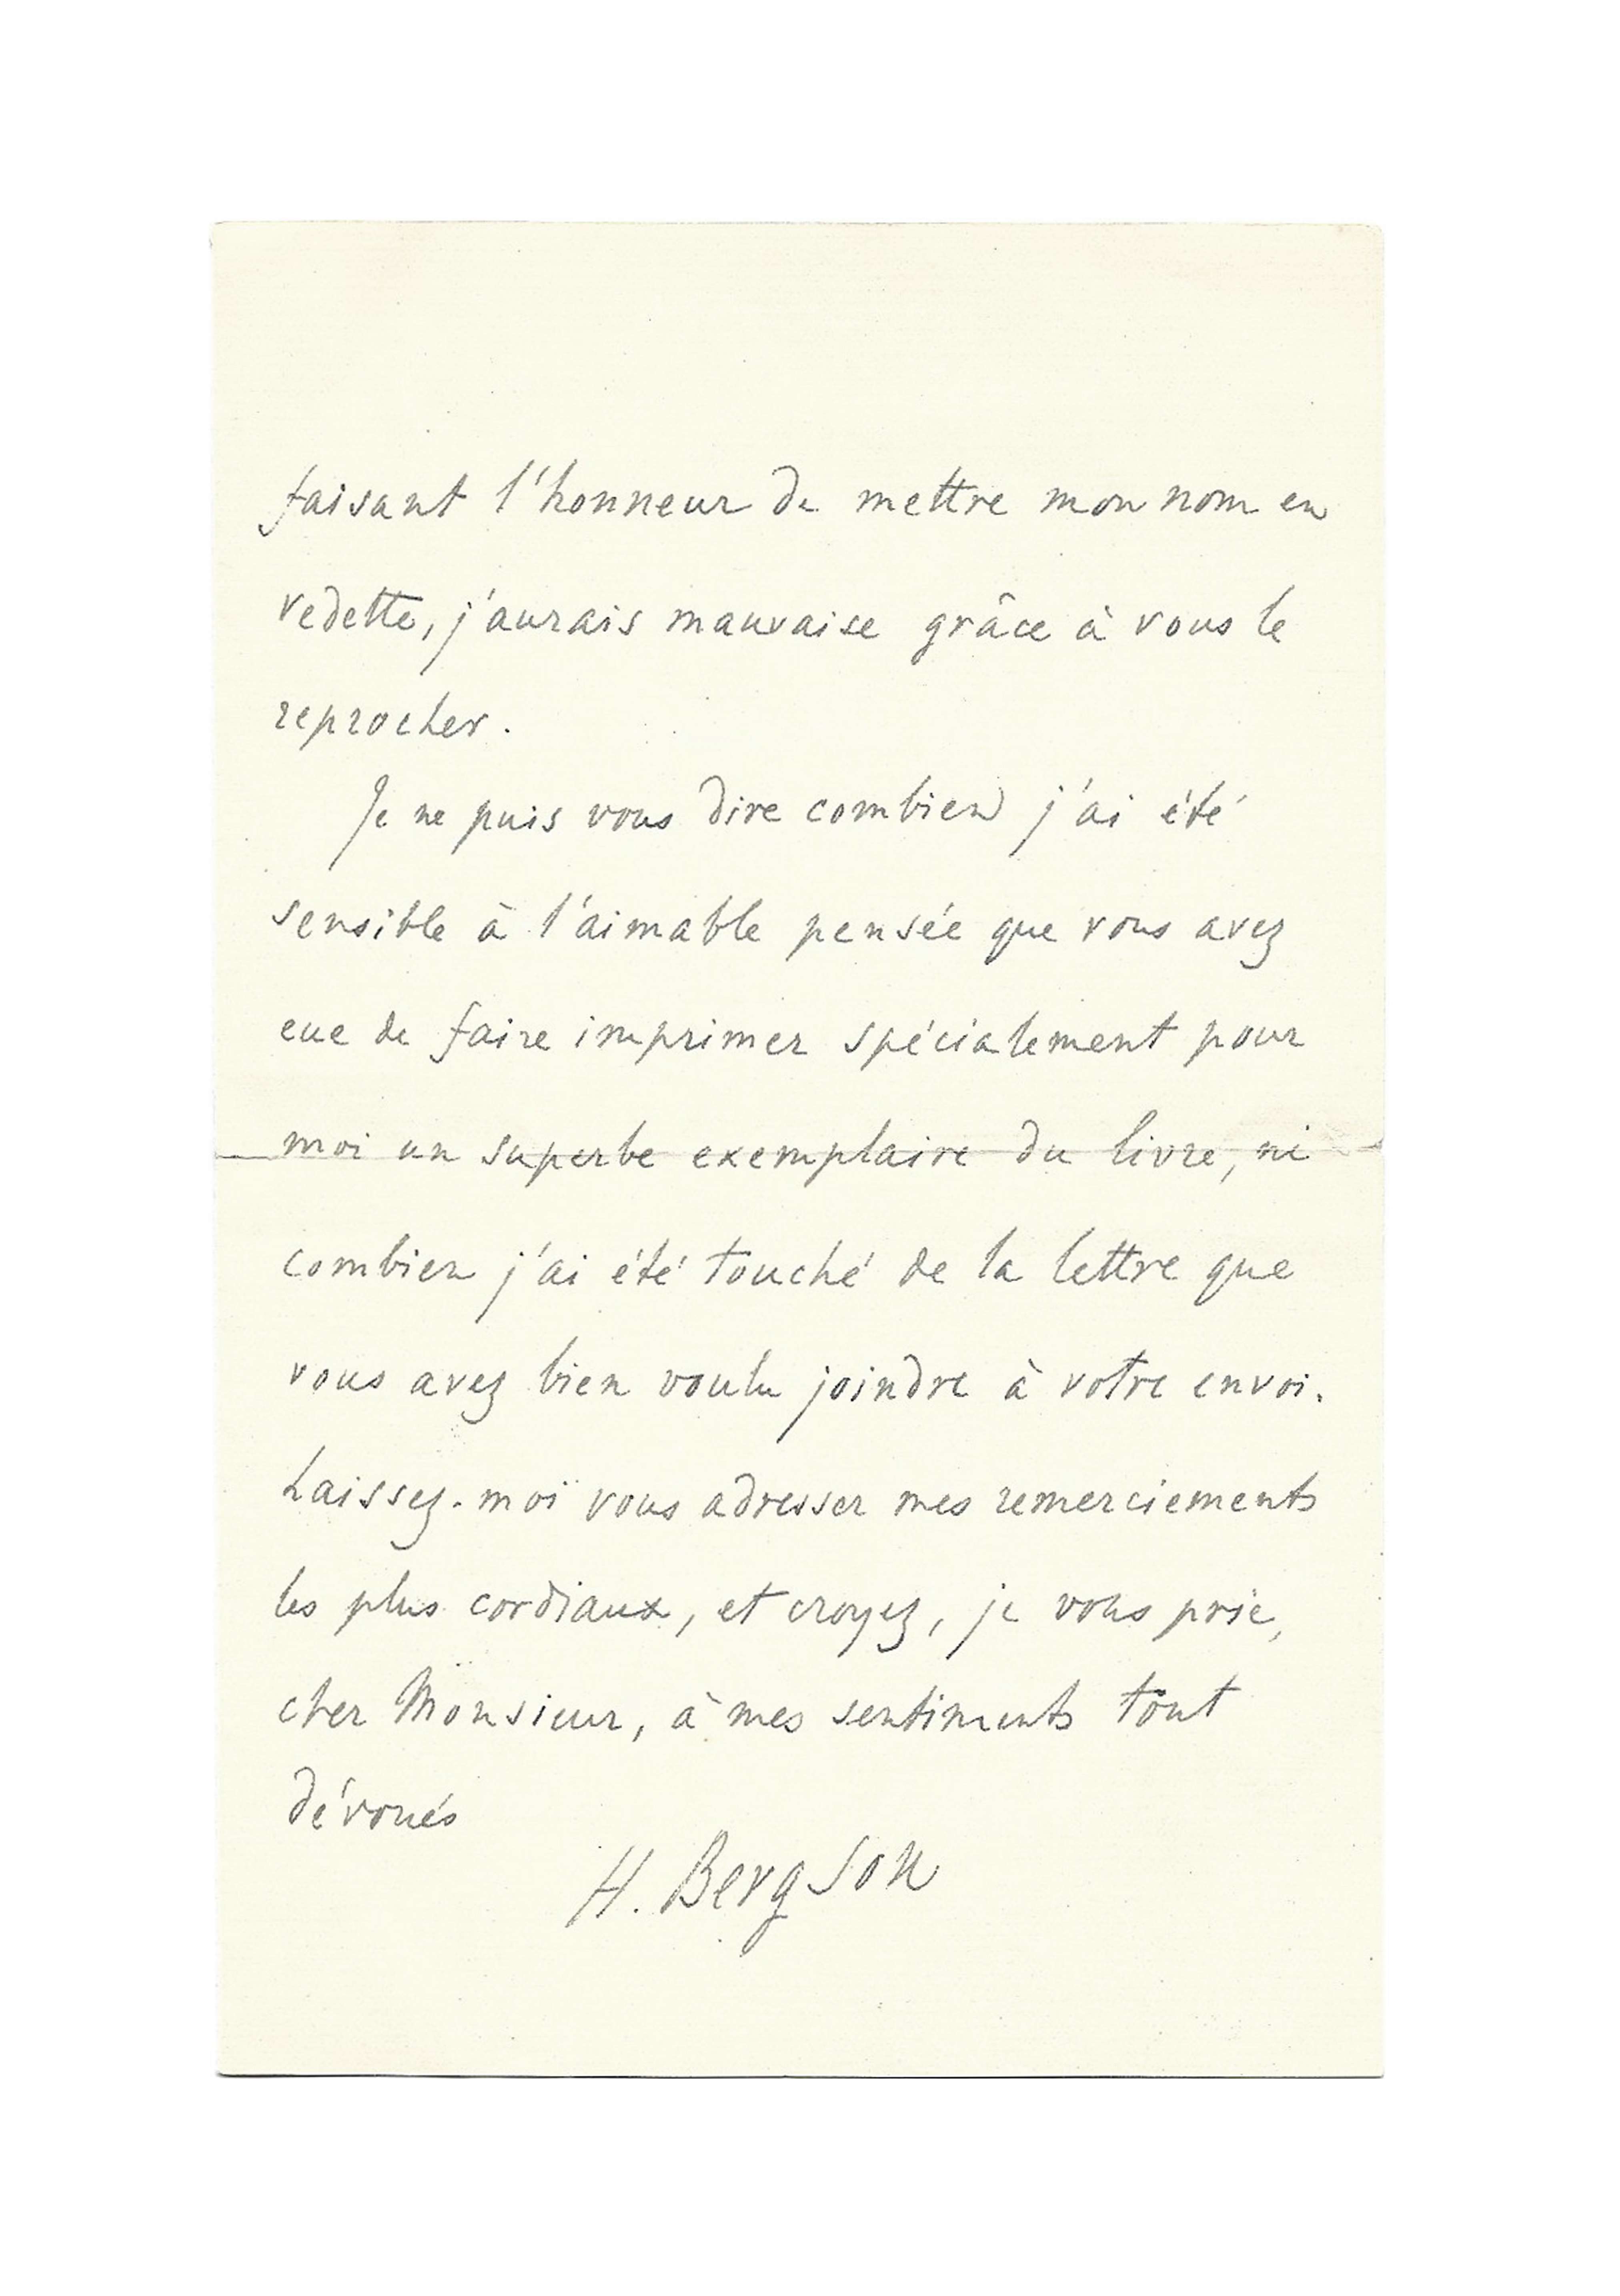 faisant l'honneur de mettre mon nom en
vedette, j'aurais mauvaise grâce à vous le
reprocher.
Je ne puis vous dire combien j'ai été
sensible à l'aimable pensée que vous avez
eue de faire imprimer spécialement pour
moi un superbe exemplaire du livre, ni
combien j'ai été touché de la lettre que
vous avez bien voulu joindre à votre envoi.
Laissez-moi vous adresser mes remerciements
les plus cordiaux, et croyez, je vous prie,
cher Monsieur, à mes sentiments tout
dévoués
H. Bergson